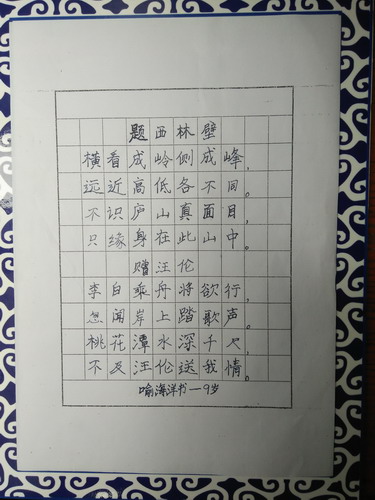 题西林壁
横看成岭侧成峰，
远近高低各不同。
不识庐山真面目，
只缘身在此山中。
赠汪伦
李白乘舟将欲行，
忽闻岸上踏歌声。
桃花潭水深千尺，
不及汪伦送我情。
喻海洋书—9岁